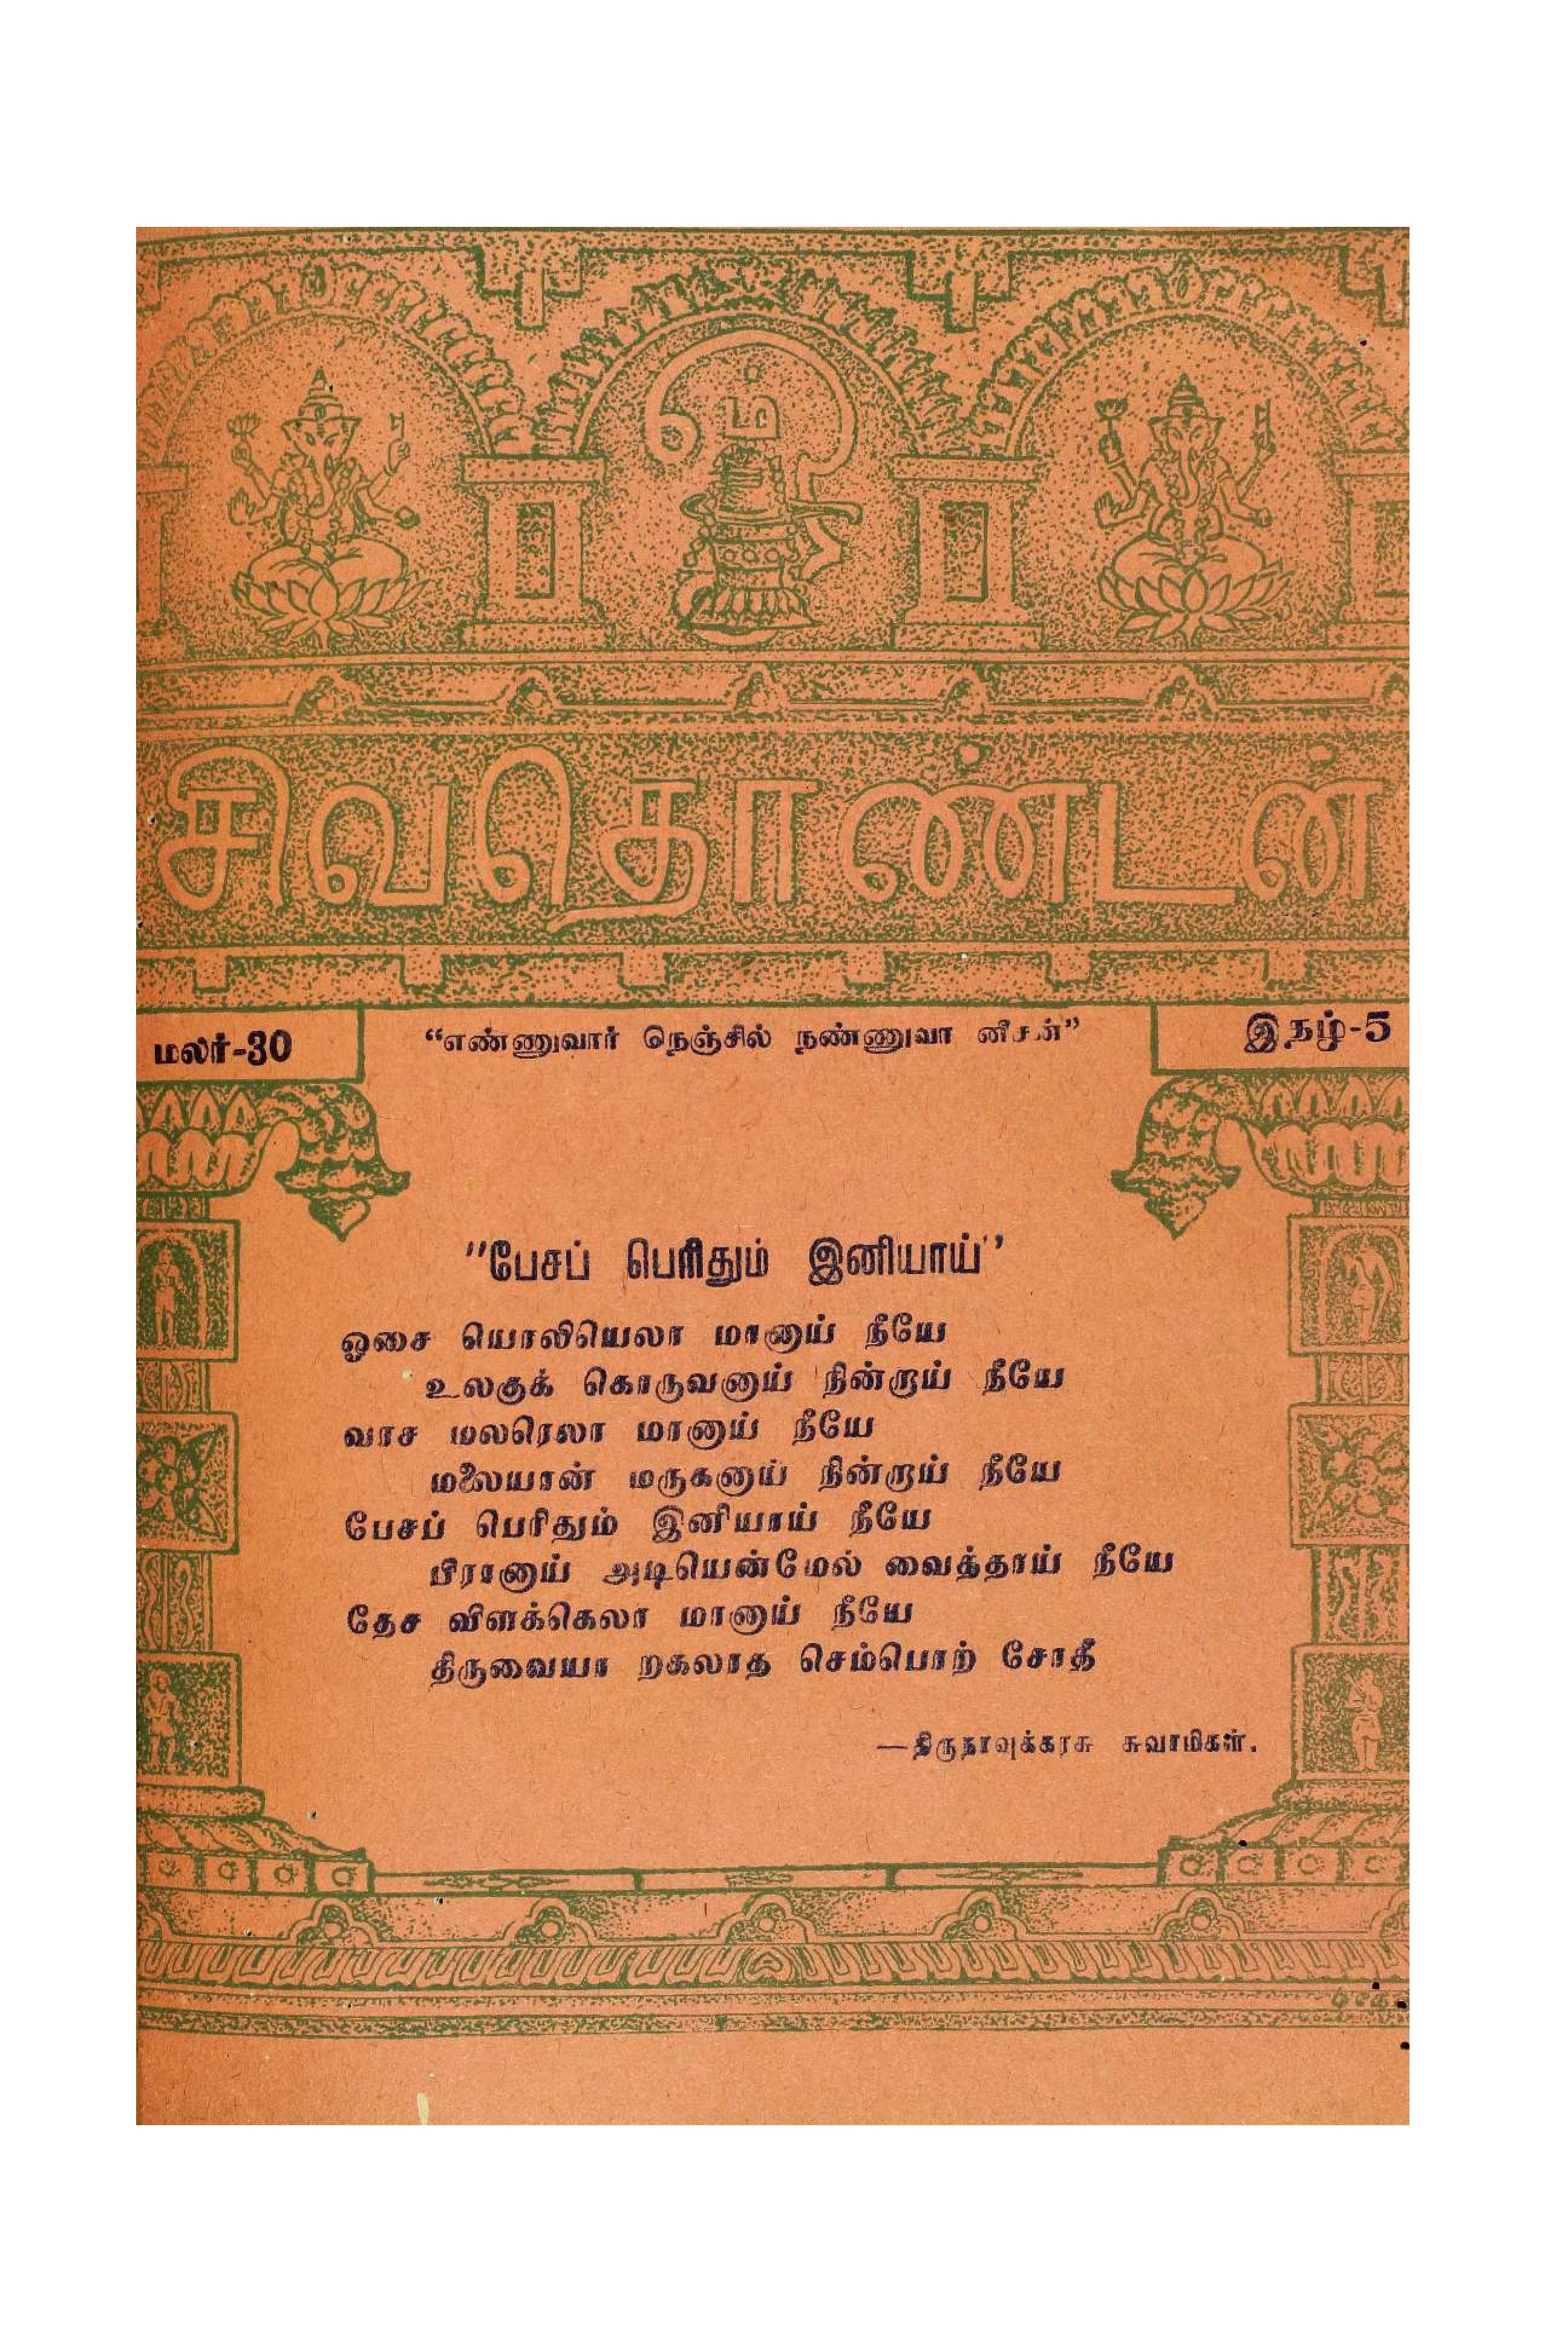 ம
சிவதொண்டன்
மலர்-30
“எண்ணுவார் நெஞ்சில் நண்ணுவா னீசன்”
இதழ்-5
"பேசப் பெரிதும் இனியாய்"
ஓசை யொலியெலா மானாய் நீயே
உலகுக் கொருவனாய் நின்றாய் நீயே
வாச மலரெலா மானாய் நீயே
மலையான் மருகனாய் நின்றாய் நீயே
பேசப் பெரிதும் இனியாய் நீயே
பிரானாய் அடியென்மேல் வைத்தாய் நீயே
தேச விளக்கெலா மானாய் நீயே
திருவையா றகலாத செம்பொற் சோதீ
—திருநாவுக்கரசு சுவாமிகள்.